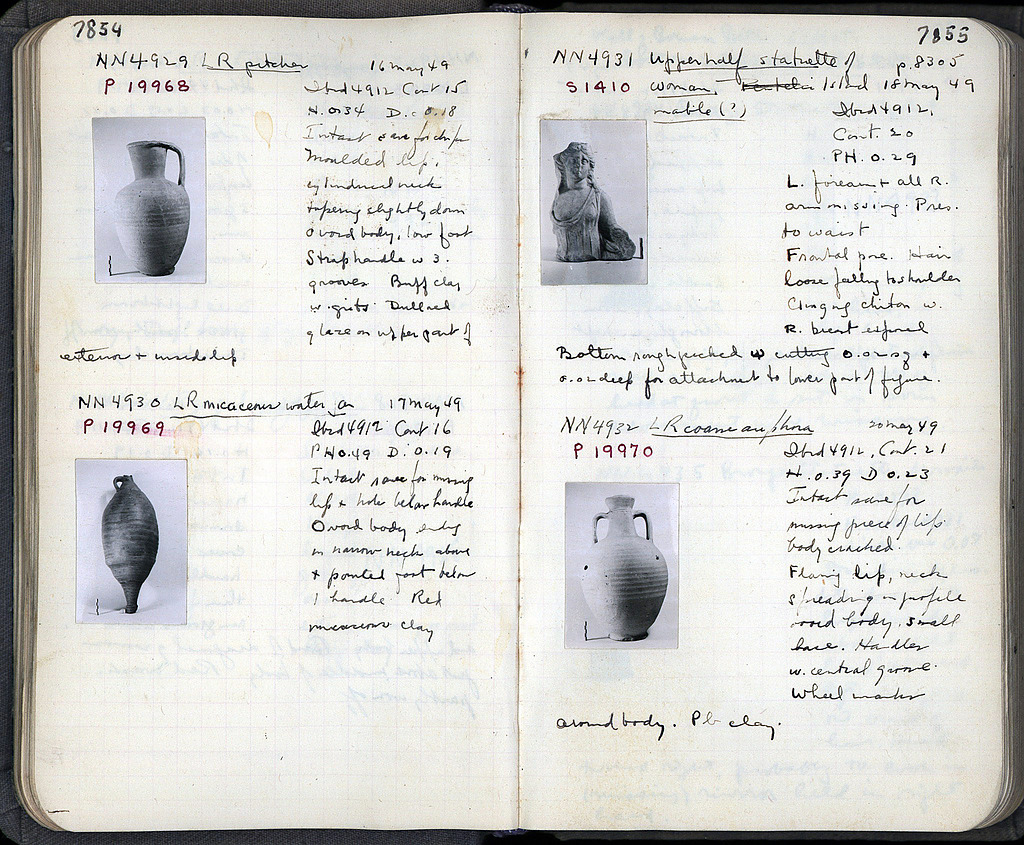 7854
NN4929 LR pitcher 16 May 49
P 19968
Ibid 4912 Cont 15
H. 0.34 D. c 0.18
Intact save for chips
Moulded lip,
cylindrical neck
tapering slightly down
Ovoid body, low foot
Strap handle w 3.
grooves Buff clay
w. grits Dull red
glaze on upper part of
exterior + inside lip
NN4930 LR micaceous water jar 17 May 49
P 19969
Ibid 4912 Cont 16
PH 0.49 D. 0.19
Intact save for missing
lip + hole below handle
Ovoid body ending
in narrow neck above
+ pointed foot below
1 handle Red
micaceous clay
7855
NN4931 Upper half statuette of p. 8305
S1410 woman, Pentelic Island 18 May 49
marble (?)
Ibid 4912,
Cont 20
PH. 0.29
L. forearm + all R.
arm missing. Pres.
to waist
Frontal pose. Hair
loose falling to shoulder
Clinging chiton w.
R. breast exposed
Bottom rough picked w cutting 0.02 sq +
0.02 deep for attachment to lower part of figure.
NN4932 LR coarse amphora 20 May 49
P 19970
Ibid 4912, Cont. 21
H. 0.39 D 0.23
Intact save for
missing piece of lip.
body cracked.
Flaring lip, neck
spreading in profile
ovoid body, small
base. Handles
w. central groove.
Wheel marks
around body. Pb clay.